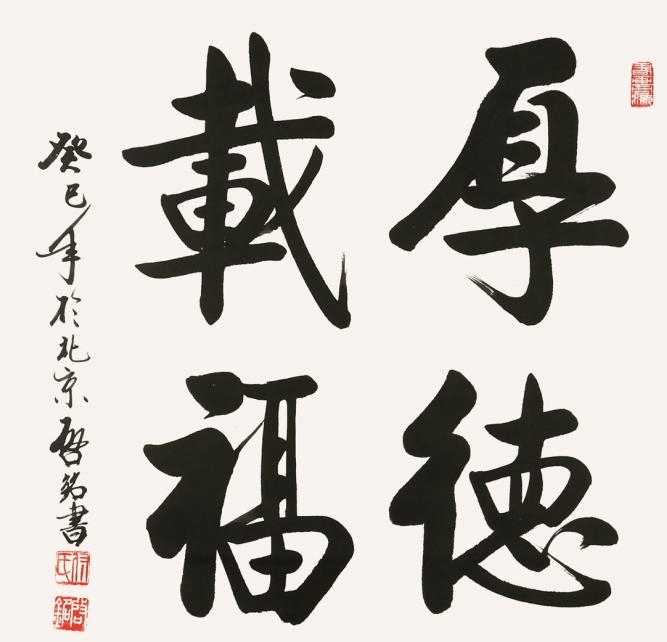 厚德
載福
癸巳年於北京啓銘書